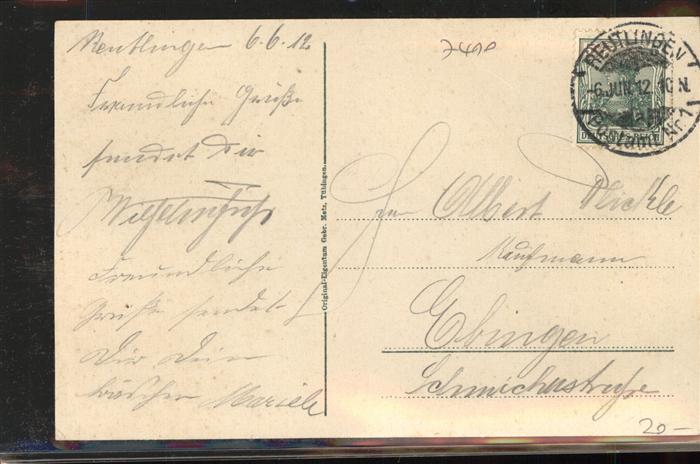 Reutlingen 6.6.12
Freundliche Grüße
sendet Dir
Freundliche
Grüße sendet
Dir Dein
Mariele
Original-Eigentum Gebr. Metz, Tübingen.
7490
REUTLINGEN
-6.JUN.12.10N.
Postamt Nr.1
Albert Nickle
Kaufmann
Ebingen
Schmiechastraße
20-